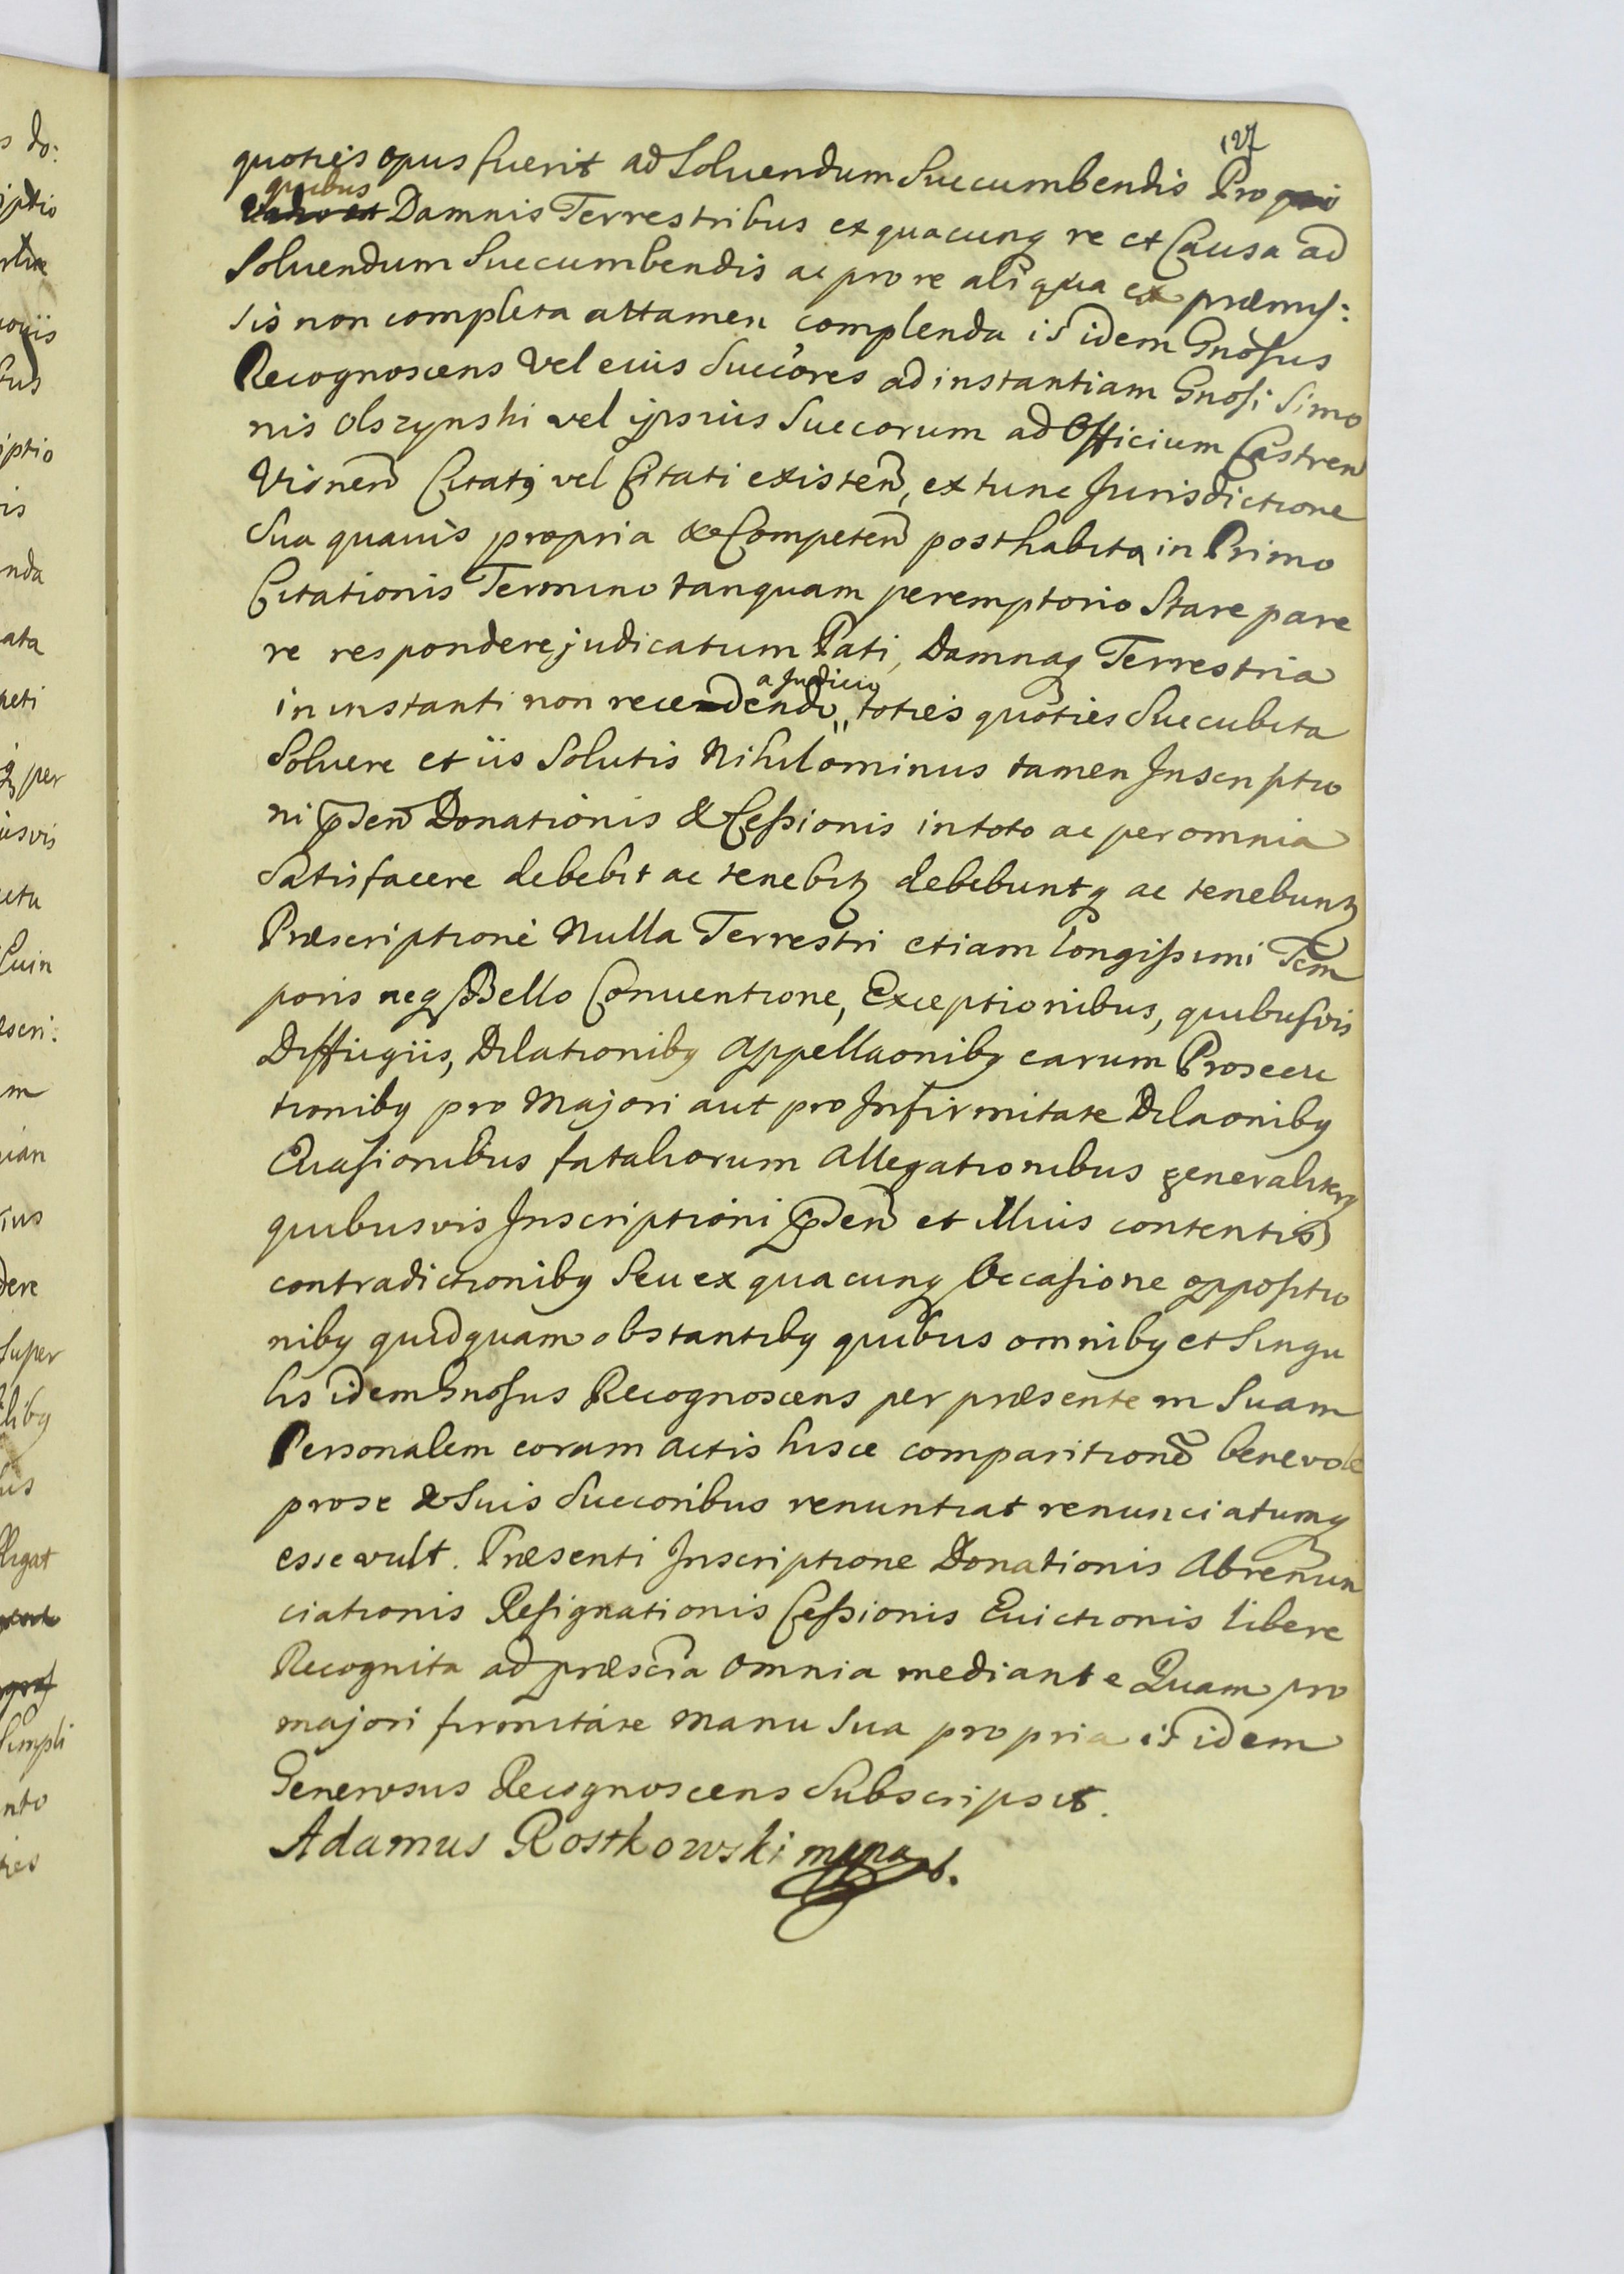 127
quoties opus fuerit ad Soluendum Succumbendis Pro
quibus
Damnis Terrestribus ex quacunq re et Causa ad
Soluendum Succumbendis ac pro re aliqua ex præmis:
sis non completa attamen complenda is idem Gnosus
Recognoscens Vel eius Succores ad instantiam Gnosi Simo
nis Olszynski vel ipsius Succorum ad Officium Castren
Visnen Citatq vel Citati existen, ex tunc Jurisdictione
Sua quauis propria & Competen posthabita in Primo
Citationis Termino tanquam peremptorio Stare pare
re respondere judicatum Pati, Damnaq Terrestria
a Judicio
in instanti non recedendo toties quoties Succubita
Soluere et iis Solutis Nihilominus tamen Inscriptio
ni pden Donationis & Cessionis in toto ac per omnia
Satisfacere debebit ac tenebitz debebuntq ac tenebuntz
Præscriptione Nulla Terrestri etiam longissimi Tem
poris neq Bello Conuentione, Exceptionibus, quibusvis
Diffugiis, Dilationibq Appellaonibq earum Prosecu
tionibq pro Majori aut pro Infirmitate Dilaonibq
Euasionibus fataliorum Allegationibus generaliterq
quibusvis Inscriptioni pden et Illius contentis
contradictionibq Seu ex quacunq Occasione oppositio
nibq quidquam obstantibq quibus omnibq et Singu
lis idem Gnosus Recognoscens per præsentem Suam
Personalem coram Actis hisce comparitione benevole
pro se & Suis Succoribus renuntiat renunciatumq
esse vult. Præsenti Inscriptione Donationis Abrenun
ciationis Resignationis Cessionis Euictionis libere
Recognita ad præscra Omnia mediante Quam pro
majori firmitate Manu Sua propria is idem
Generosus Recognoscens Subscripsit.
Adamus Rostkowski mppa